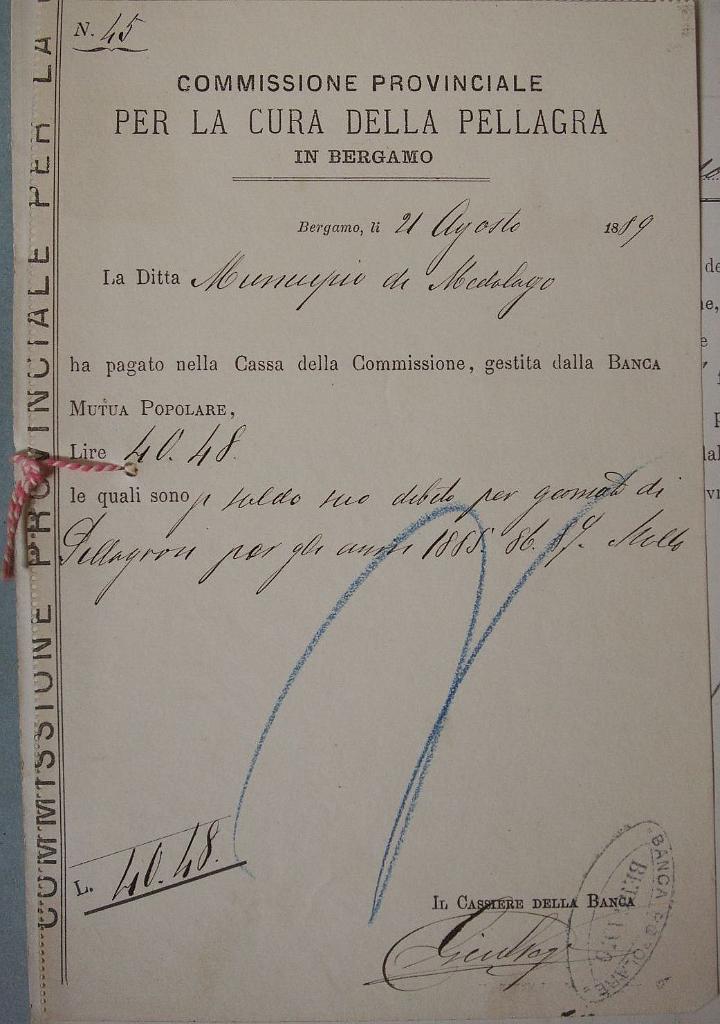 N. 45
COMMISSIONE PROVINCIALE
PER LA CURA DELLA PELLAGRA
IN BERGAMO
Bergamo, li 21 Agosto 1889
La Ditta Municipio di Medolago
ha pagato nella Cassa della Commissione, gestita dalla BANCA
MUTUA POPOLARE,
Lire 40.48.
le quali sono p saldo suo debito per giornate di
Pellagrosi per gli anni 1885. 86. 87.
L. 40.48.
IL CASSIERE DELLA BANCA
BANCA POPOLARE
COMMISSIONE PROVINCIALE PER LA